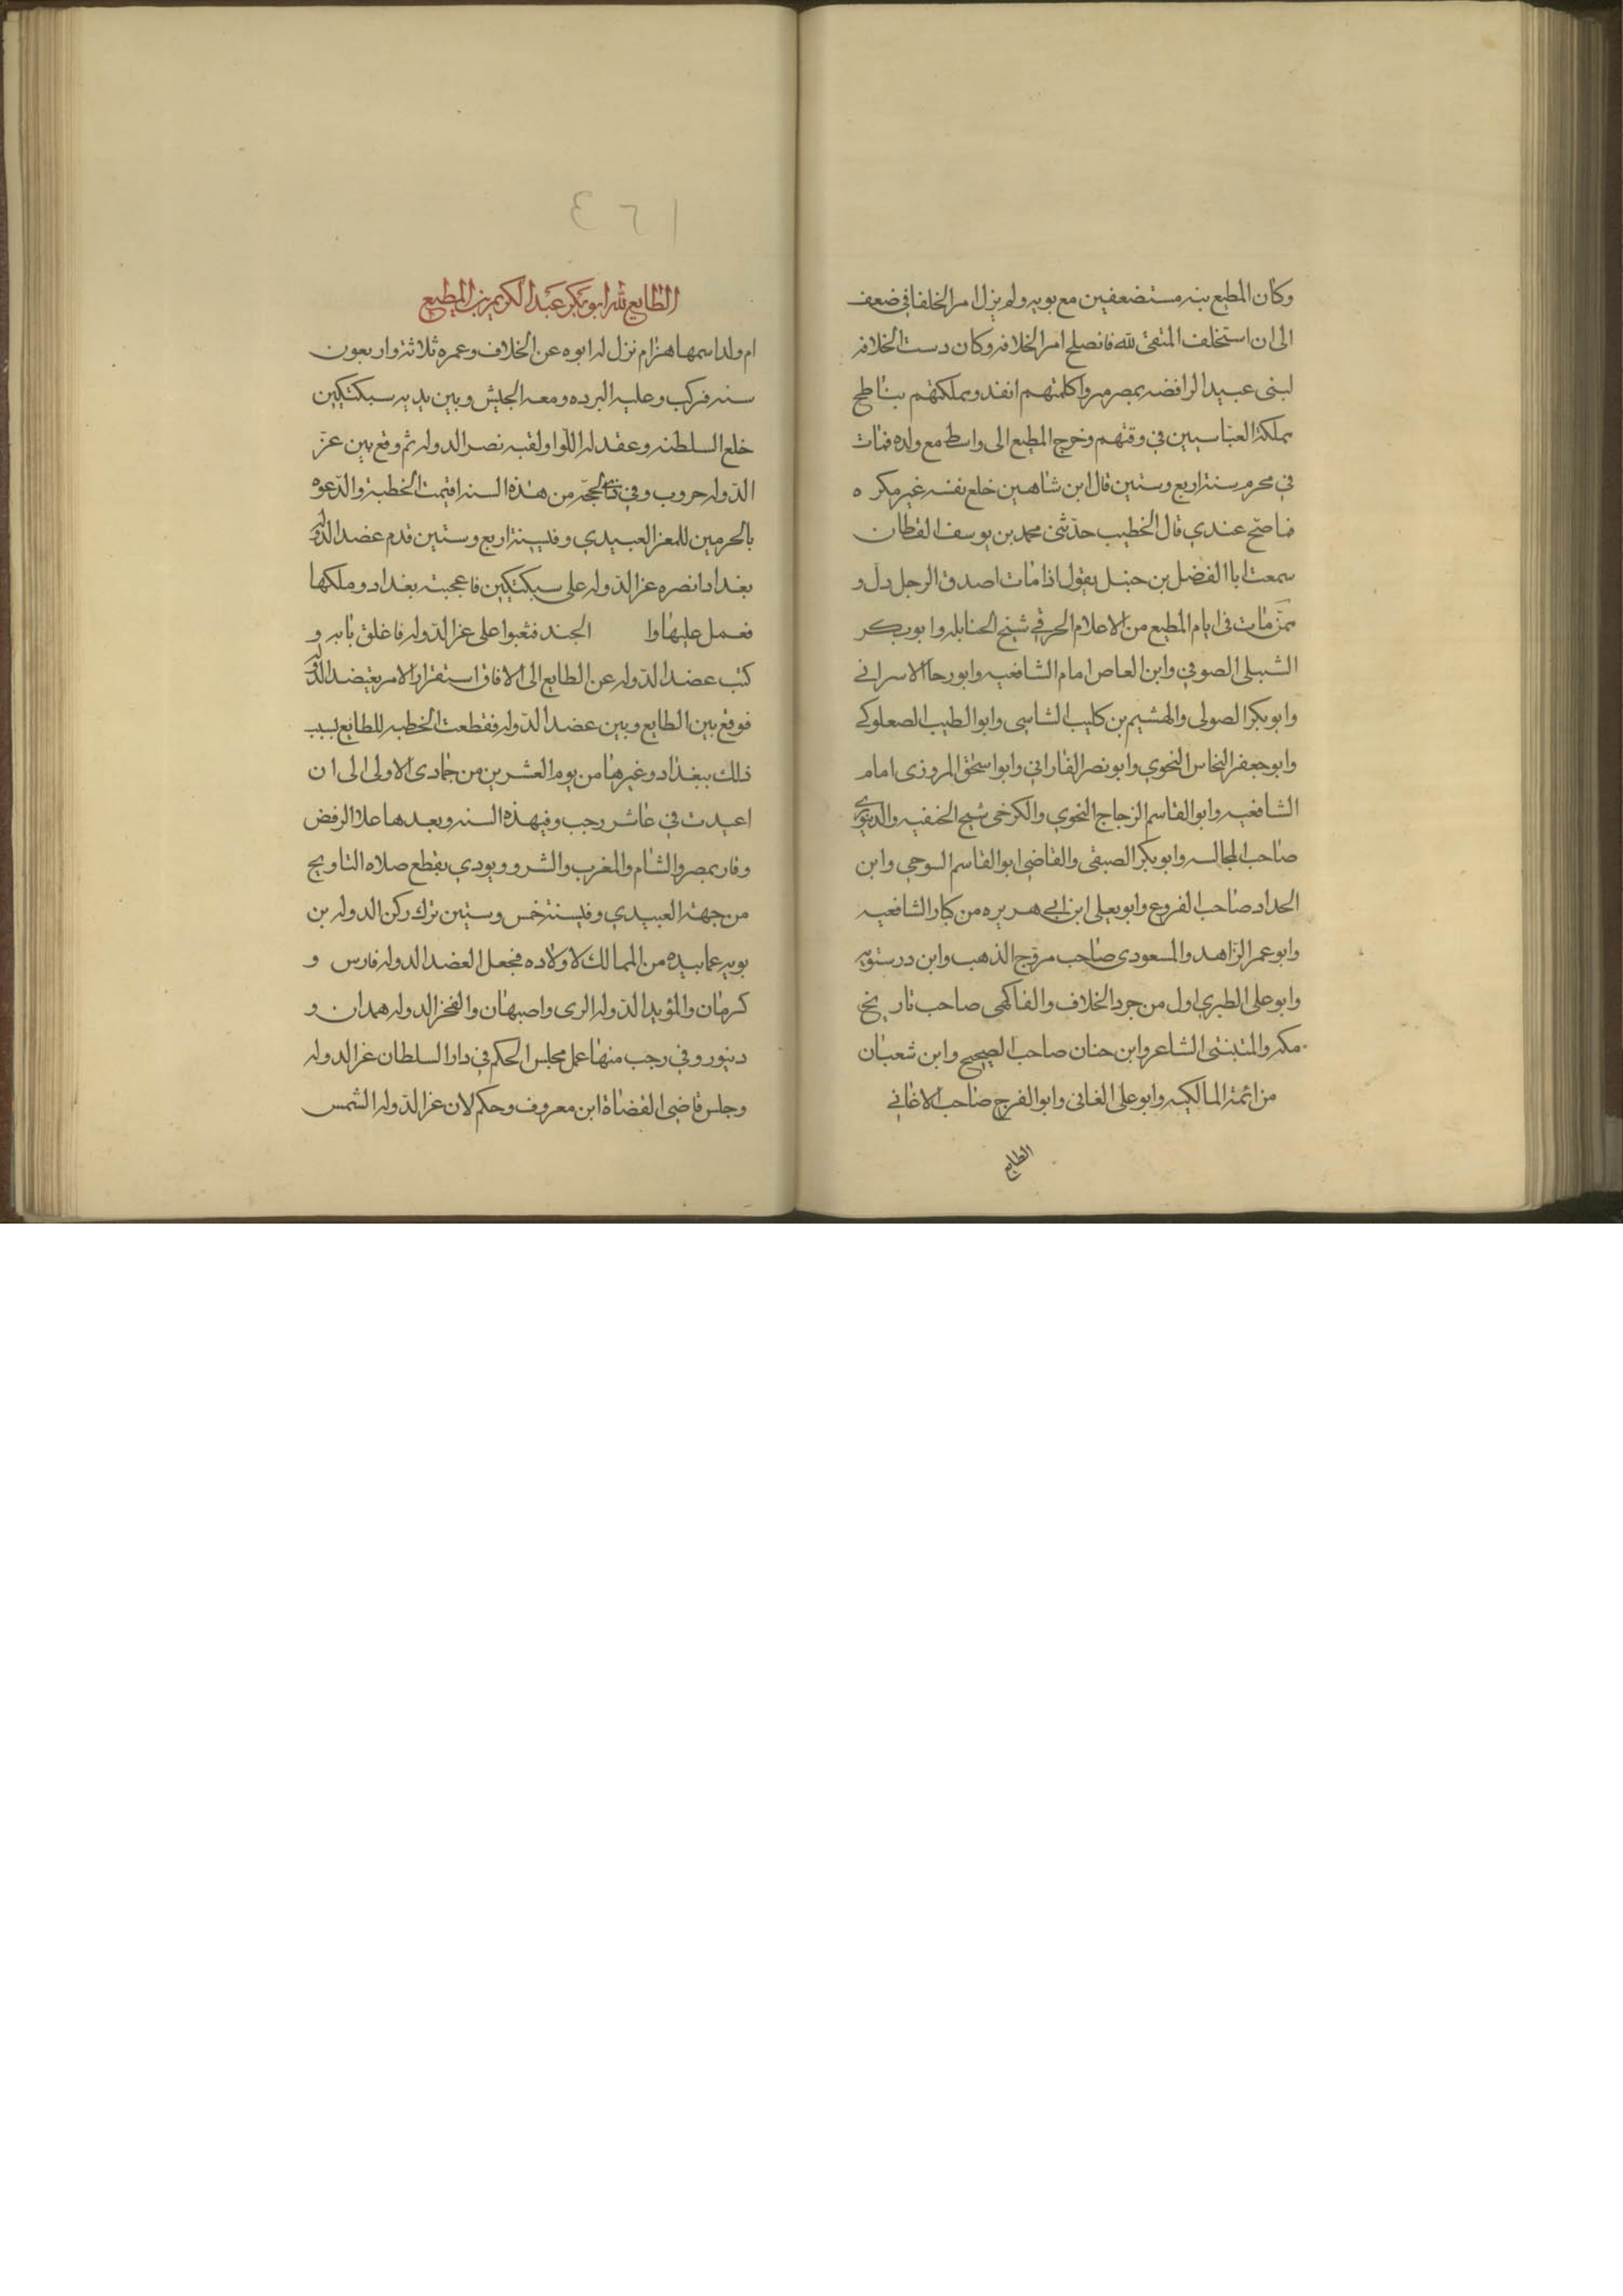 وكان المطيع بنه مستضعفين مع بويه ولم يزل امر الخلفا في ضعف
الى ان استخلف المتقى لله فانصلح امر الخلافه وكان دست الخلافه
لبنى عبيد الرافضه بمصر ميروا كلمتهم انفذ ومملكتهم بناطح
مملكة العباسيين في وقتهم وخرج المطيع الى واسط مع ولده فمات
في محرم سنة اربع وستين قال ابن شاهين خلع نفسه غير مكره
فما صح عندي قال الخطيب حدثنى محمد بن يوسف القطان
سمعت ابا الفضل بن حنبل يقول اذا مات اصدق الرجل دل و
ممن مات فى ايام المطيع من الاعلام الحرقي شيخ الحنابله وابو بكر
الشبلى الصوفي وابن العاص امام الشافعيه وابو رحا الاسرانى
وابو بكر الصولى والهشيم بن كليب الشاسى وابو الطيب الصعلوكي
وابو جعفر النحاس النحوي وابو نصر الفارابي وابو اسحق المروزى امام
الشافعيه وابو القاسم الزجاج النحوي والكرخى شيخ الحنفيه والدينورى
صاحب المجالسه وابو بكر الصبقى والقاضى ابو القاسم السوحى وابن
الحداد صاحب الفروع وابو يعلى ابن ابى هريره من كبار الشافعيه
وابو عمر الزاهد والمسعودى صاحب مروج الذهب وابن درستويه
وابو على الطبري اول من جرد الخلاف والفاكهى صاحب تاريخ
مكه والمتبنى الشاعر وابن حنان صاحب الصحيح وابن شعبان
من ائمة المالكيه وابو على الغانى وابو الفرج صاحب الاغاني
الطايع
١٦٤
الطايع لله ابو بكر عبد الكريم بن المطيع
ام ولد اسمها هزام نزل له ابوه عن الخلاف وعمره ثلاثة واربعون
سنه فركب وعليه البرده ومعه الجيش وبين يديه سبكتكين
خلع السلطنه وعقد له اللوا ولقبه نصر الدوله ثم وقع بين عز
الدوله حروب وفي ذى الحجه من هذه السنه اقيمت الخطبة والدعوه
بالحرمين للمعز العبيدي وفي سنة اربع وستين قدم عضد الدوله
بغداد انصره عز الدوله على سبكتكين فاعجبته بغداد وملكها
فعمل عليها وا الجند فثعبوا على عز الدوله فاغلق بابه و
كتب عضد الدوله عن الطايع الى الافاق استقرار الامر بعضد الدوله
فوقع بين الطايع وبين عضد الدوله فقطعت الخطبه للطايع بسبب
ذلك ببغداد وغيرها من يوم العشرين من جمادى الاولى الى ان
اعيدت في عاشر رجب وفي هذه السنه وبعدها علا الرفض
وفار بمصر والشام والمغرب والشرو ويودي بقطع صلاه التاويح
من جهة العبيدي وفي سنة خمس وستين ترك ركن الدوله بن
بويه عما بيده من الممالك لاولاده فجعل العضد الدوله فارس و
كرمان والمؤيد الدوله الرى واصبهان والفخر الدوله همدان و
دينور وفي رجب منها عمل مجلس الحكم في دار السلطان عز الدوله
وجلس قاضى القضاة ابن معروف وحكم لان عز الدوله الشمس